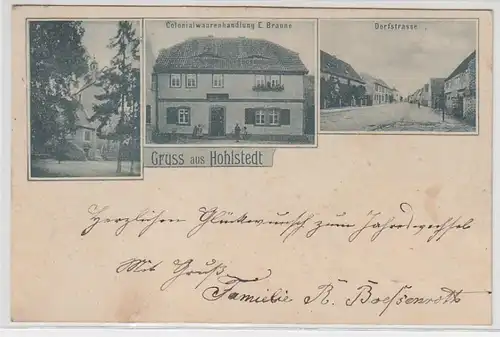 Colonialwaarenhandlung C. Branne
Dorfstrasse
Gruss aus Hohlstedt
Herzlichen Glückwunsch zum Jahreswechsel
Mit Gruß
Familie R. Boeßenroth